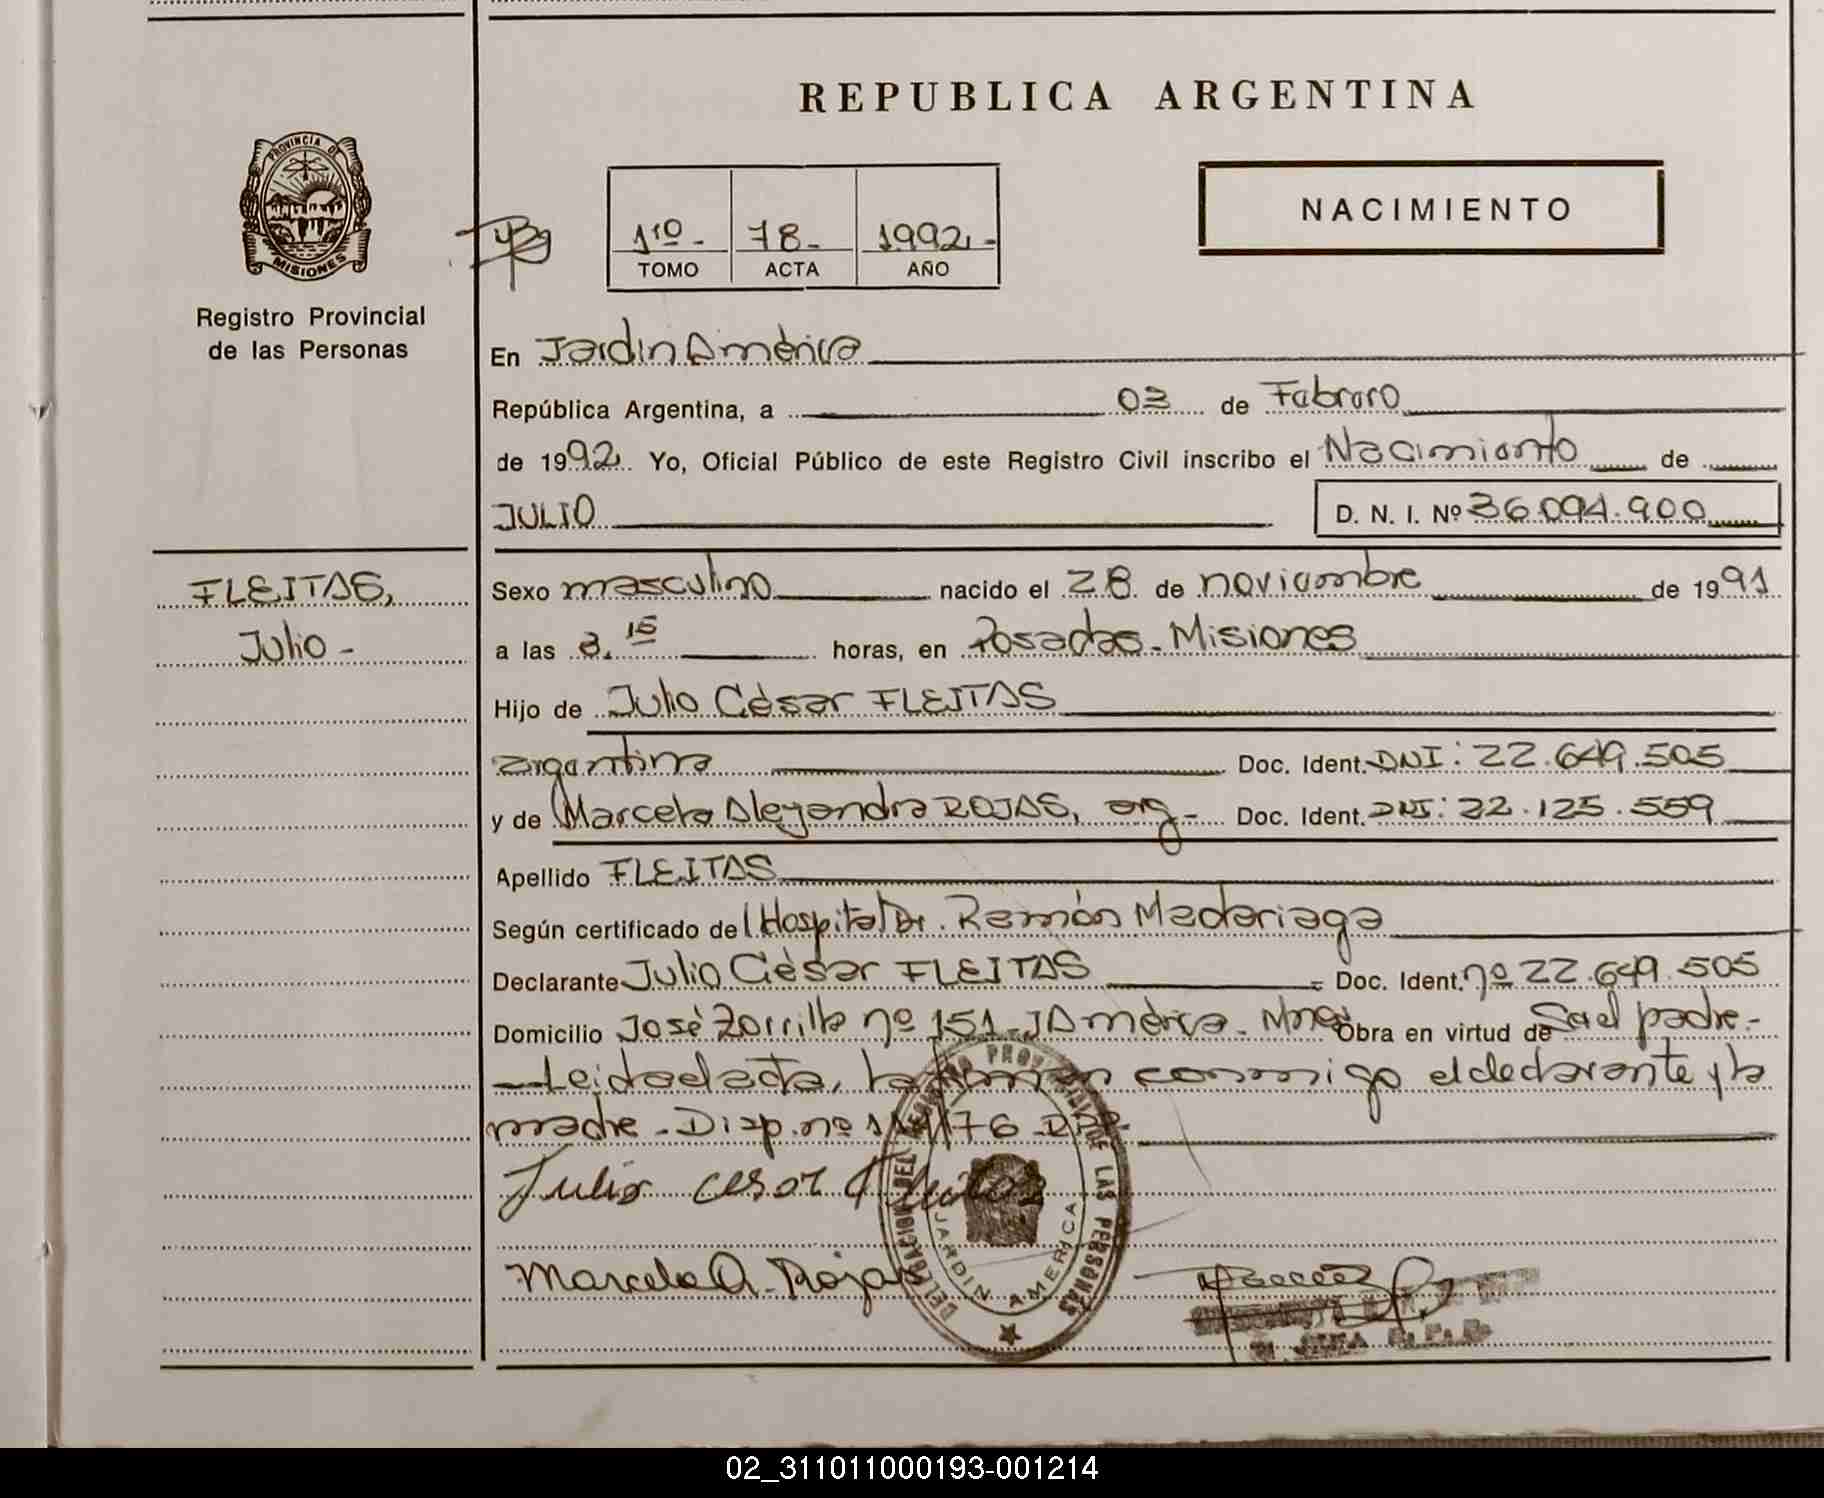 REPUBLICA ARGENTINA
PROVINCIA DE
MISIONES
Registro Provincial
de las Personas
NACIMIENTO
1ro - 78 - 1992 -
TOMO ACTA AÑO
En Jardin América
República Argentina, a 03 de Febrero
de 1992. Yo, Oficial Público de este Registro Civil inscribo el Nacimiento de
JULIO D. N. I. Nº 36.094.900
FLEITAS,
Julio -
Sexo masculino nacido el 28 de noviembre de 1991
a las 8.15 horas, en Posadas - Misiones
Hijo de Julio César FLEITAS
argentina Doc. Ident. DNI: 22.649.505
y de Marcela Alejandra ROJAS, arg - Doc. Ident. DNI: 22.125.559
Apellido FLEITAS
Según certificado del Hospital Dr. Ramón Madariaga
Declarante Julio César FLEITAS Doc. Ident. nº 22.649.505
Domicilio José Zorrilla nº 151 - J América - Mnes Obra en virtud de Ser el padre -
Leida el acta, la firman conmigo el declarante y la
madre - Disp. nº
Julio cesar Fleitas
Marcela A. Rojas
DELEGACION DEL REGISTRO PROVINCIAL DE LAS PERSONAS
JARDIN AMERICA
02_311011000193-001214